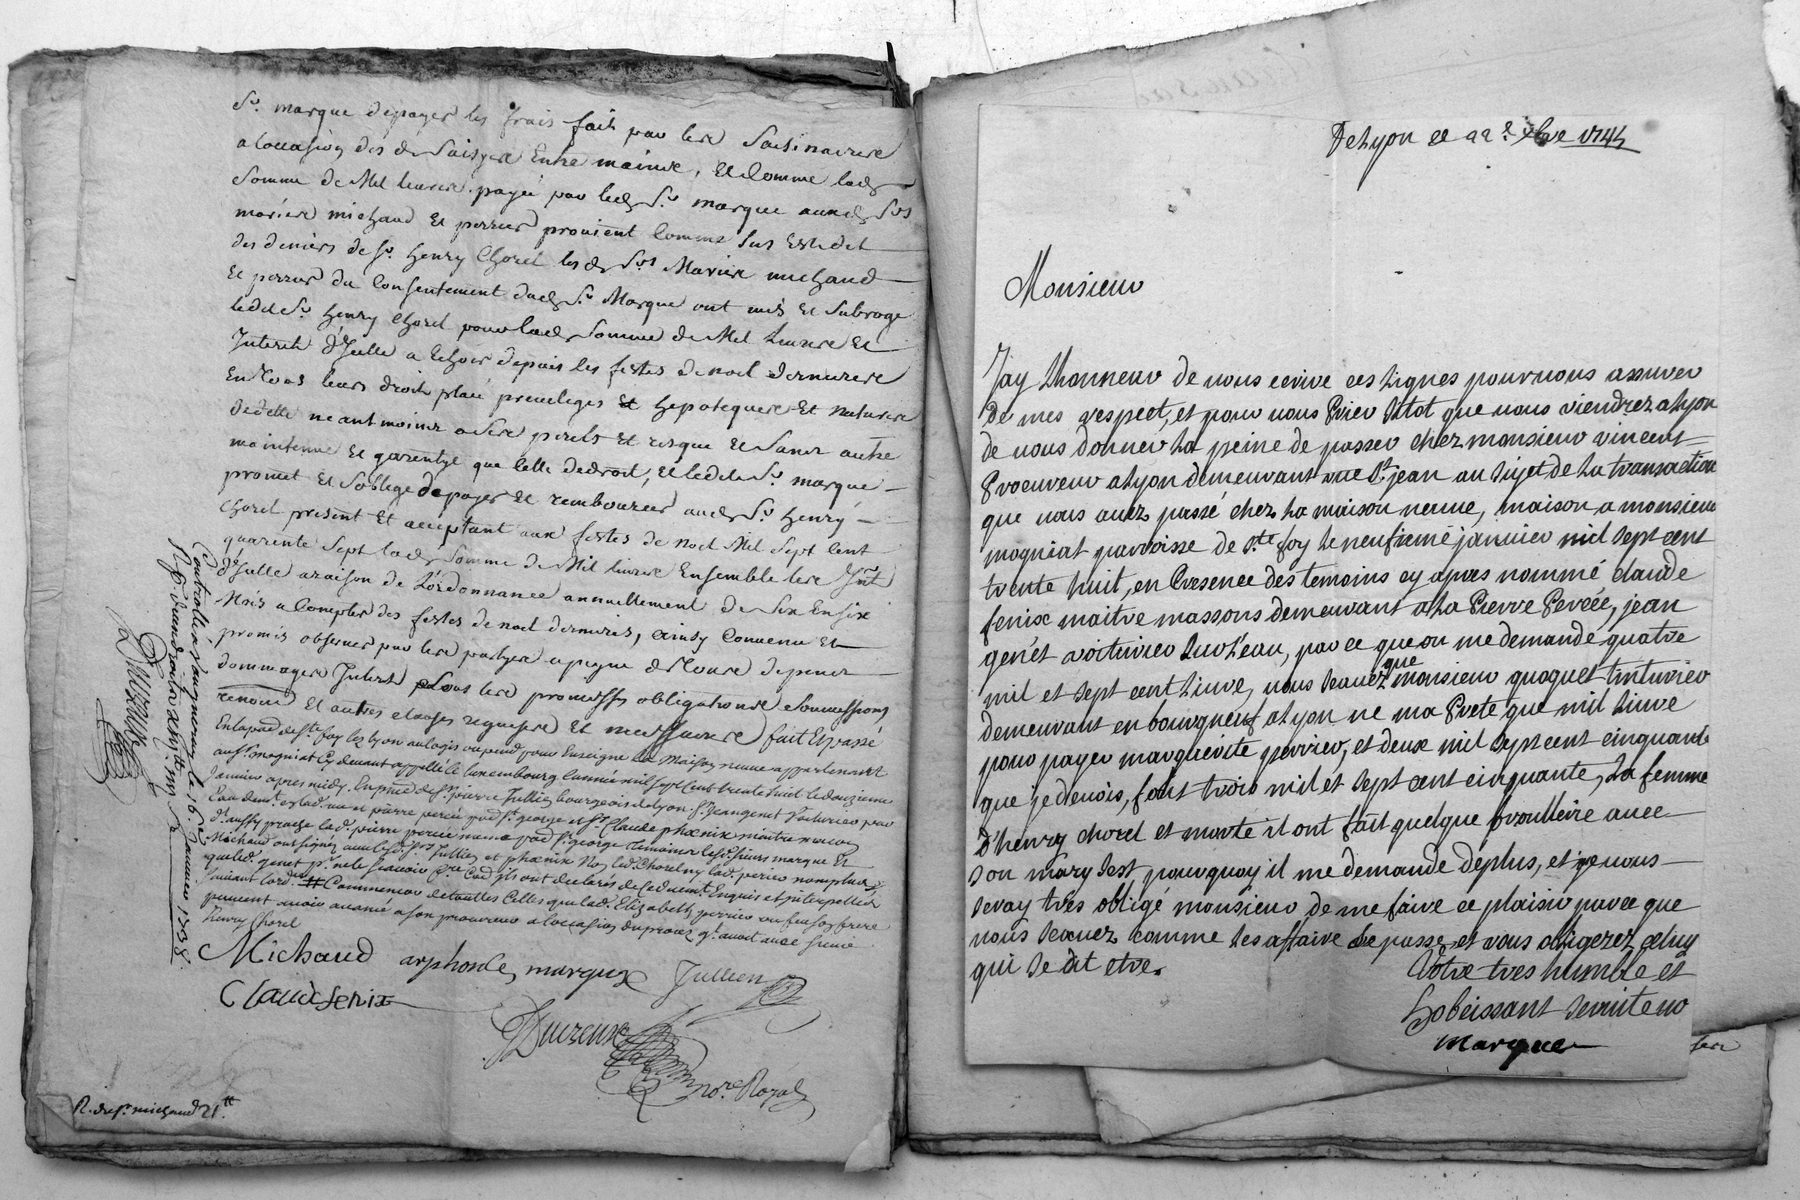 Sr. marque depayer les frais fait par lesd
a loccasion des d. Saisyes Entre mains, Et Comme lad.
Somme de Mil livres payée par led. Sr. marque auxd. Srs
mariés michaud Et perrier provient Comme Sus Est dit
des deniers de Sr. henry Chorel les d. Srs Mariés michaud
Et perrier du Consentement dud. Sr. Marque ont mis Et Subrogé
led. Sr. henry Chorel pour lad. Somme de Mil livres Et
Interets d'Icelle a Echoir depuis les festes de noel dernieres
En tous leurs droits place privileges Et hipoteques Et nature
de dette neantmoins a Ses perils Et risque Et Sans autre
maintenue Et garentye que Celle dedroit, Et led. Sr. marque
promet Et Soblige depayer Et rembourser aud. Sr. henry
Chorel present Et acceptant aux festes de noel Mil Sept Cent
quarente Sept lad. Somme de Mil livres Ensemble les Intts
d'Icelle a raison de Lordonnance annuellement de Six En Six
Mois a Compter des festes de noel dernieres, Ainsy Convenu Et
promis observer par les partyes a peyne de tous depens
dommages Interets sous les promesses obligations Soumissions
renon. Et autres clauses requises Et necessaires fait Et passé
En la par. de Ste. foy lez lyon au logis ou pend pour Enseigne La Maison neuve appartenant
au Sr. mogniat Cy devant appellé le luxembourg lannée mil sept Cent trente huit le douzieme
Janvier apres midy. En pnce de Sr. pierre Jullien bourgeois de lyon, Sr. Jean genet Voiturier par
Eau demt. a lad. pierre percée pad. St. george et Sr. Claude phœnix maitre macon
d'aussy proche lad. pierre percée meme pad. St. george Temoins lesd. Sieurs marque Et
Michaud ont signez avec lesd. Srs Jullien et phœnix Non led. Chorel ny lad. perrier non plus
que led. genet pr. ne le Scavoir Ce qu'ils ont declarés de ce duemt. Enquis et interpellés
suivant lord. # Commencer de toutes Celles que lad. Elizabeth perrier ou feu Son frere
peuvent avoir avancé a son procureur a loccasion du procez qt. avoit avec Sieur
henry Chorel
Michaud arphonse marque Jullien
Claude fenix
Duxreux
nore. Royal
R. du Sr. michaud 21 tt
Controllé a Soucieu le 16e. Janvier 1738.
De Lyon ce 22e xbre 1744
Monsieur
Jay Lhonneur de vous ecrire ces Lignes pour vous assurer
de mes respect, et pour vous Prier Sitot que vous viendrez a Lyon
de vous donner La peine de passer chez monsieur vincent
Procureur a Lyon demeurant rue St. jean au Sujet de La transaction
que vous avez passé chez La maison neuve, maison, a monsieur
mogniat parroisse de Ste foy Le neufieme janvier mil Sept cent
trente huit, en Presence des temoins cy apres nommé claude
fenix maitre massons demeurant a La Pierre Percée, jean
genét voiturier Sur L'eau, par ce que on me demande quatre
mil et Sept cent Livre, vous Scavez que monsieur quoquet tinturier
demeurant en bourgneuf a Lyon ne ma Preté que mil Livre
pour payer marguerite perrier, et deux mil Sept cent cinquante
que je devois, font trois mil et Sept cent cinquante, La femme
d'henry chorel et morte il ont fait quelque broullerie avec
Son mary Sest pourquoy il me demande deplus, et je vous
Seray très obligé monsieur de me faire ce plaisir par ce que
vous Scavez comme Les affaire Se passe, et vous obligerez celuy
qui Se dit etre.
Votre tres humble et
hobeissant Serviteur
Marque